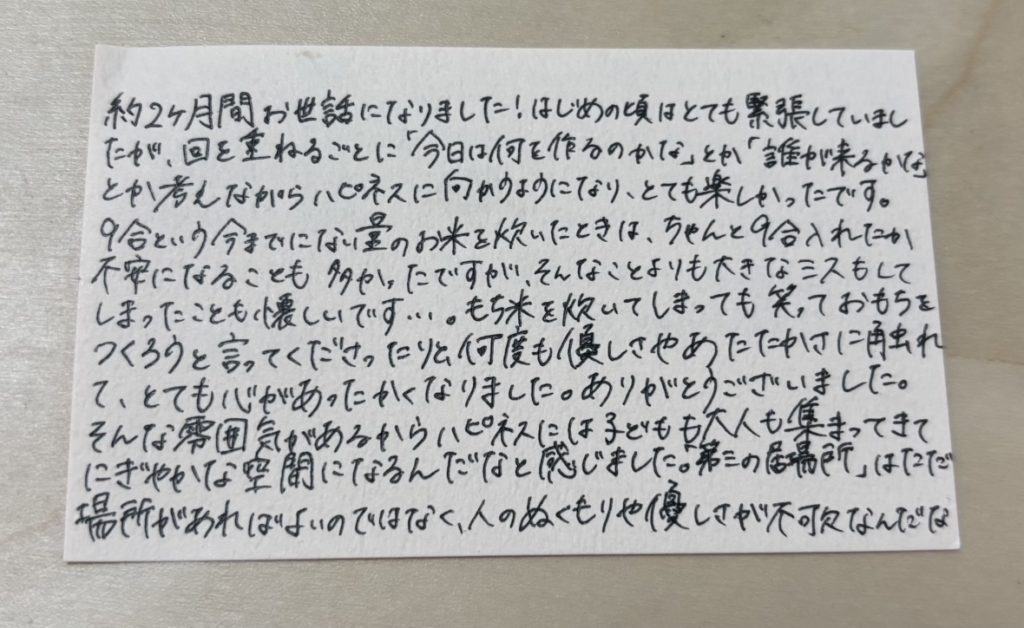 約2ヶ月間お世話になりました！はじめの頃はとても緊張していまし
たが、回を重ねるごとに「今日は何を作るのかな」とか「誰が来るかな」
とか考えながらハピネスに向かうようになり、とても楽しかったです。
9合という今までにない量のお米を炊いたときは、ちゃんと9合入れたか
不安になることも多かったですが、そんなことよりも大きなミスもして
しまったことも懐しいです…。もち米を炊いてしまっても笑っておもちを
つくろうと言ってくださったりと、何度も優しさやあたたかさに触れ
て、とても心があったかくなりました。ありがとうございました。
そんな雰囲気があるからハピネスには子どもも大人も集まってきて
にぎやかな空間になるんだなと感じました。「第三の居場所」はただ
場所があればよいのではなく、人のぬくもりや優しさが不可欠なんだな